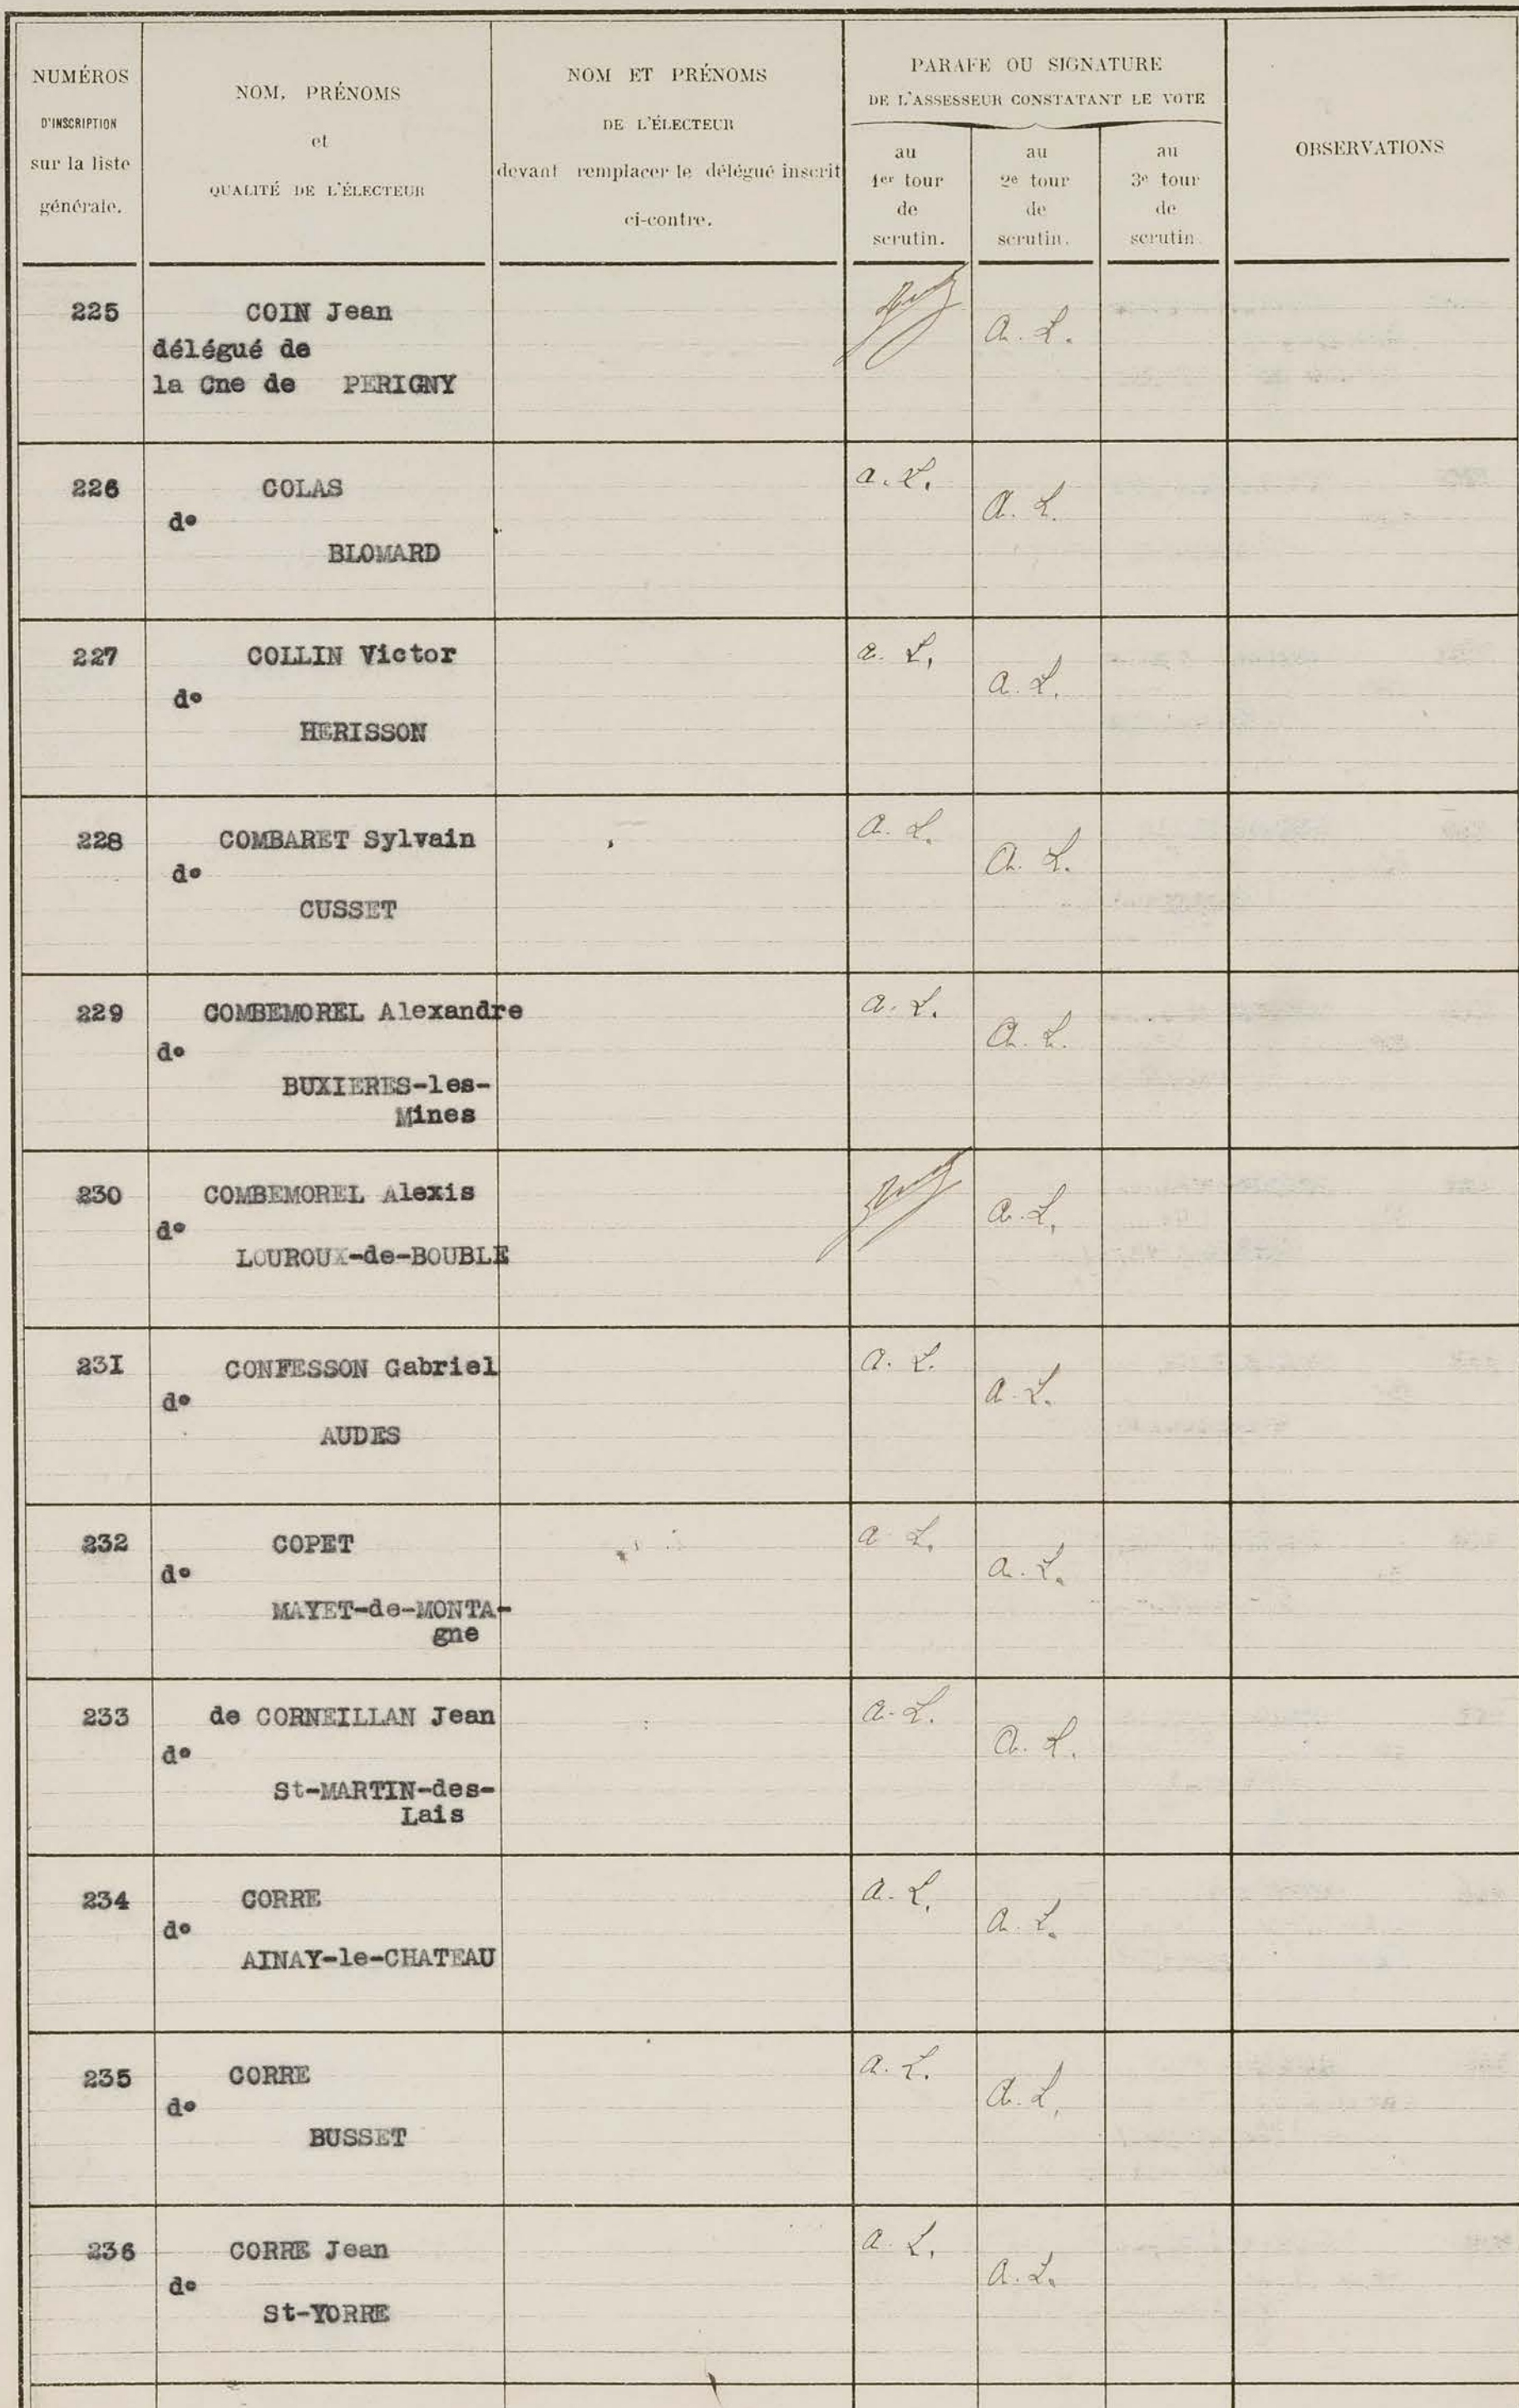 NUMÉROS
D'INSCRIPTION
sur la liste
générale.
NOM, PRÉNOMS
et
QUALITÉ DE L'ÉLECTEUR
NOM ET PRÉNOMS
DE L'ÉLECTEUR
devant remplacer le délégué inscrit
ci-contre.
PARAFE OU SIGNATURE
DE L'ASSESSEUR CONSTATANT LE VOTE
au
1er tour
de
scrutin.
au
2e tour
de
scrutin.
au
3e tour
de
scrutin
OBSERVATIONS
225 COIN Jean
a. L.
délégué de
la Cne de PERIGNY
226 COLAS a. L.
d° a. L.
BLOMARD
227 COLLIN Victor a. L.
d° a. L.
HERISSON
228 COMBARET Sylvain a. L.
d° a. L.
CUSSET
229 COMBEMOREL Alexandre a. L.
d° a. L.
BUXIERES-les-
Mines
230 COMBEMOREL Alexis
d° a. L.
LOUROUX-de-BOUBLE
231 CONFESSON Gabriel a. L.
d° a. L.
AUDES
232 COPET a L.
d° a. L.
MAYET-de-MONTA-
gne
233 de CORNEILLAN Jean a. L.
d° a. L.
St-MARTIN-des-
Lais
234 CORRE a. L.
d° a. L.
AINAY-le-CHATEAU
235 CORRE a. L.
d° a. L.
BUSSET
236 CORRE Jean a. L.
d° a. L.
St-YORRE